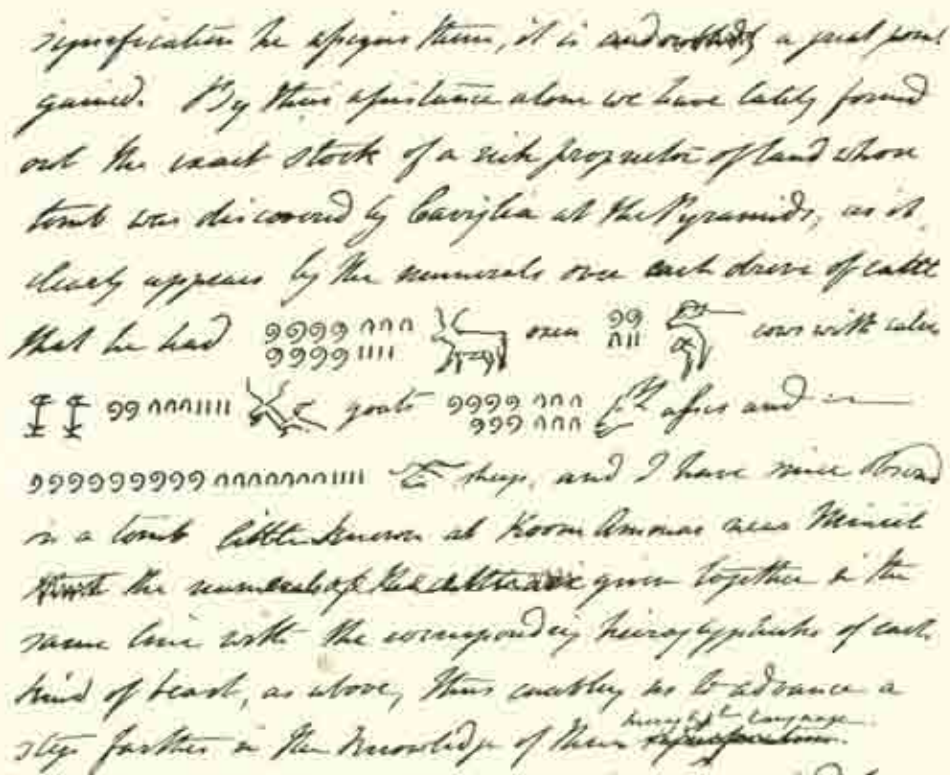 signification he assigns them, it is undoubtedly a great point
gained. By this assistance alone we have lately found
out the exact stock of a rich proprietor of land whose
tomb was discovered by Caviglia at the Pyramids, as it
clearly appears by the numerals over each drove of cattle
that he had oxen cows with calves
goats asses and
sheep, and I have since observed
in a tomb little known at Koom Ahmar near Minieh
the numerals of the cattle are given together in the
same line with the corresponding hieroglyphicks of each
kind of beast, as above, thus enabling us to advance a
hierog. language
step farther in the knowledge of their